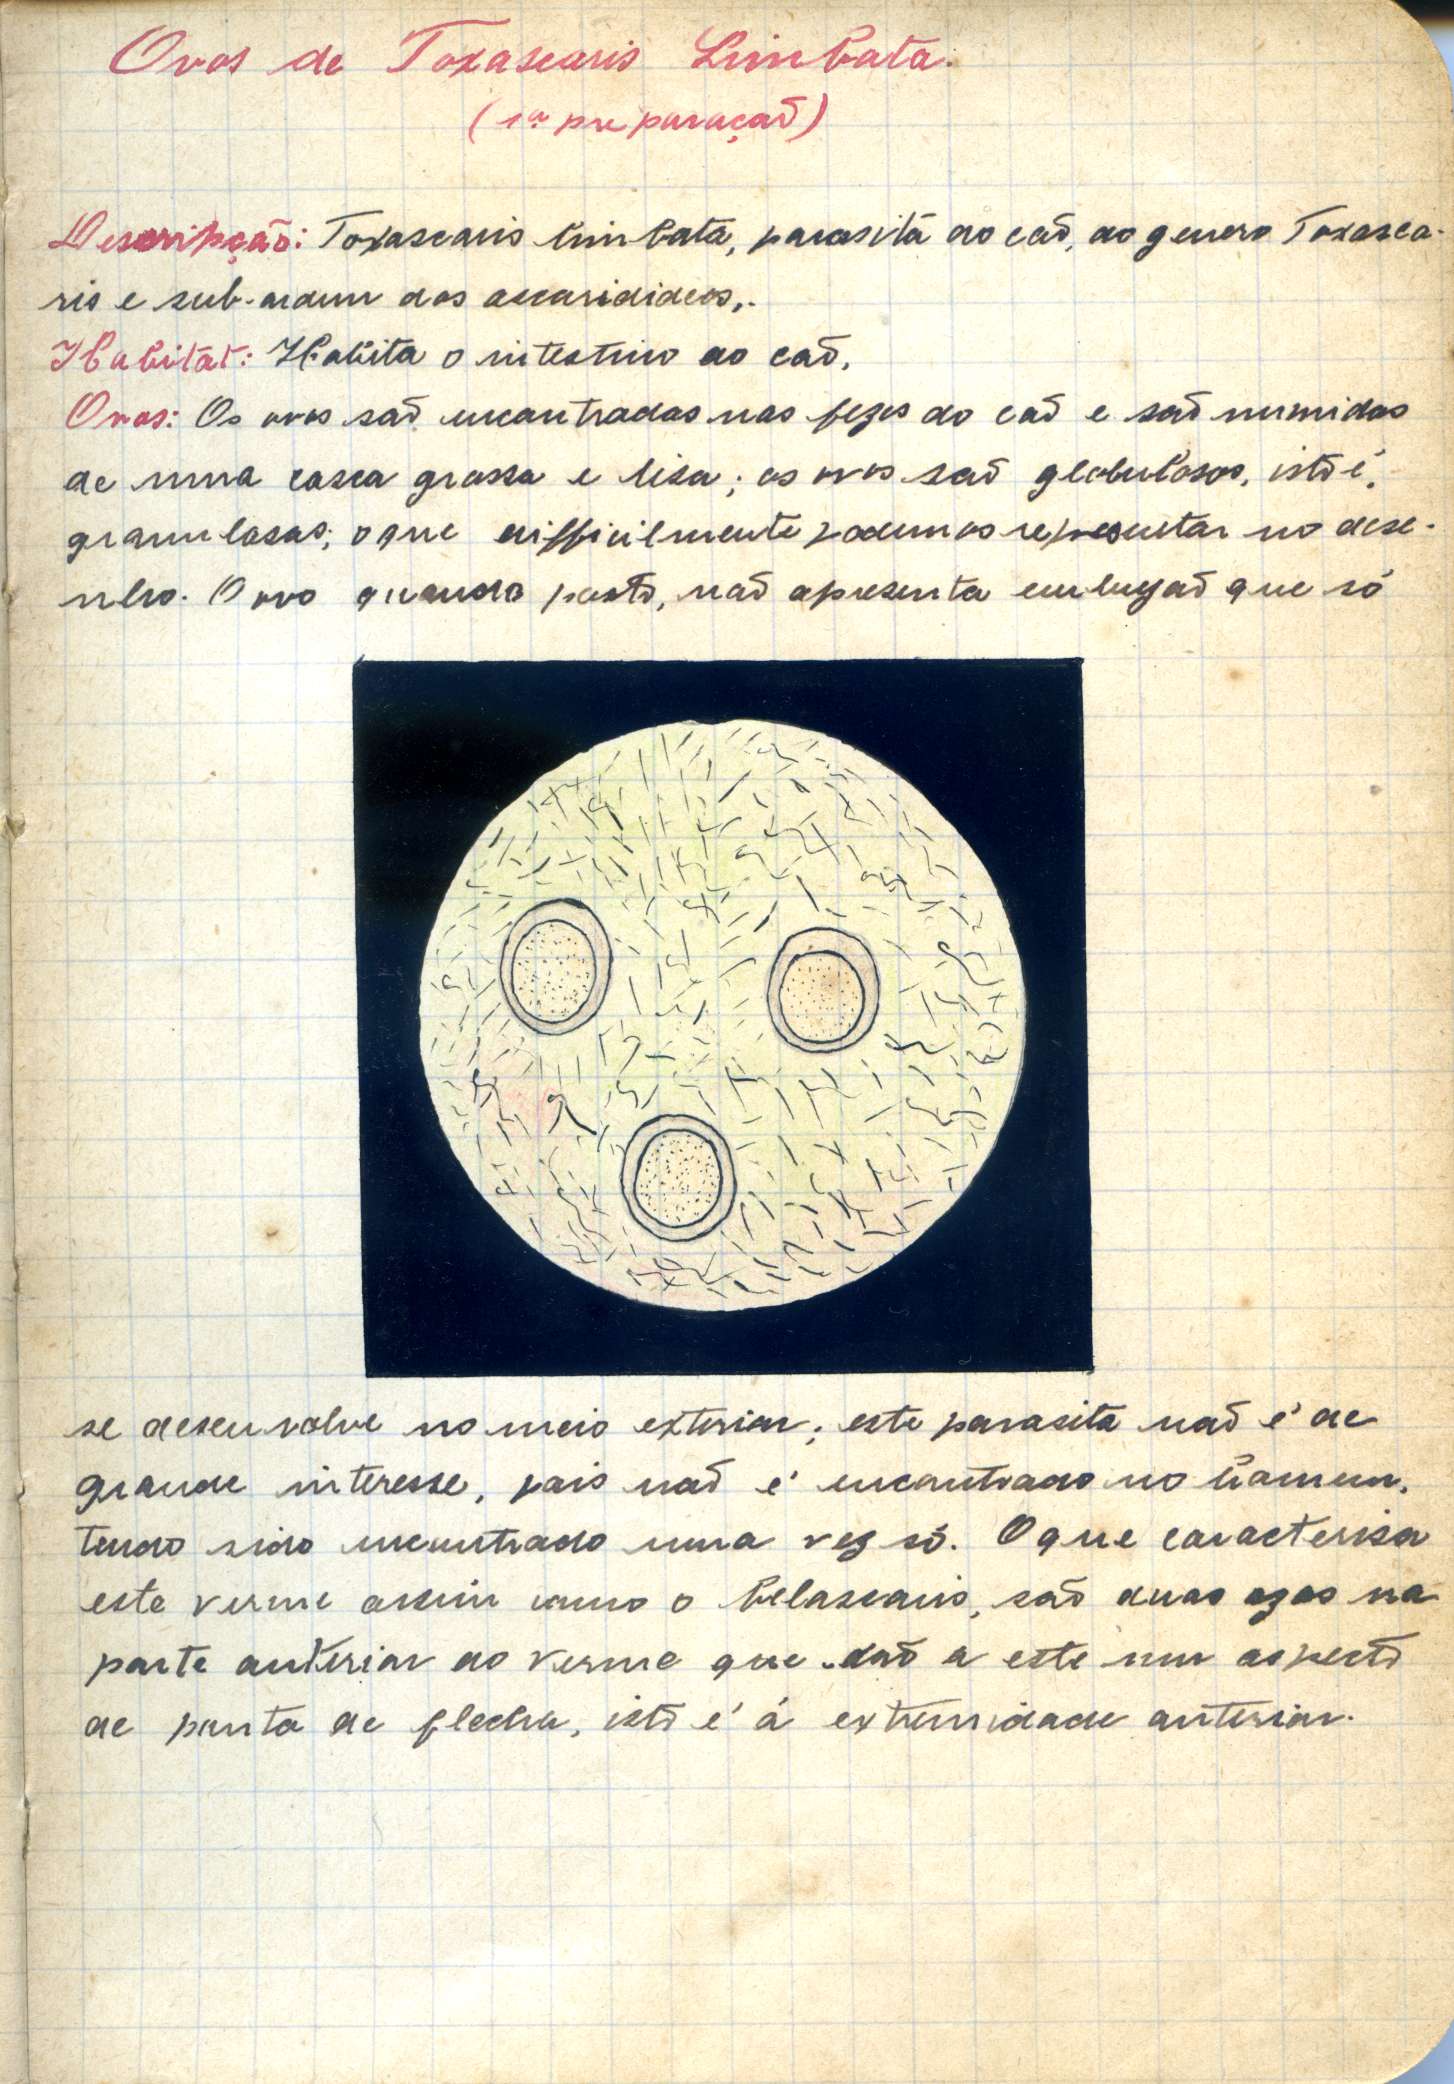 Ovos de Toxascaris Limbata.
(1ª preparação)
Descripção: Toxascaris limbata, parasita do cão, do genero Toxasca-
ris e sub-ordem dos ascaridideos,.
Habitat: Habita o intestino do cão.
Ovos: Os ovos são encontrados nas fezes do cão e são munidos
de uma casca grossa e lisa; os ovos são globulosos, isto é,
granulosos; o que difficilmente podemos representar no dese-
nho. O ovo quando posto, não apresenta embryão que só
se desenvolve no meio exterior; este parasita não é de
grande interesse, pois não é encontrado no homem,
tendo sido encontrado uma vez só. O que caracterisa
este verme assim como o belascaris, são duas azas na
parte anterior do verme que dão a este um aspecto
de ponta de flecha, isto é á extremidade anterior.